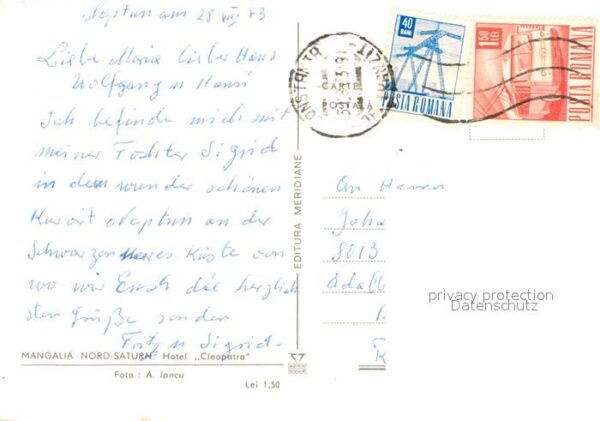 Neptun am 28 VIII 73
Liebe Maria lieber Hans
Wolfgang u Hansi
Ich befinde mich mit
meiner Tochter Sigrid
in dem wunder schönen
Kurort Neptun an der
Schwarzen Meeres Küste von
wo wir Euch die herzlich
sten Grüße senden
Fritz u Sigrid.
MANGALIA NORD-SATURN. Hotel „Cleopatra"
Foto : A. Iancu
Lei 1,50
EDITURA MERIDIANE
CONSTANTA
40
BANI
POSTA ROMANA
1,50
LEI
POSTA ROMANA
An Herrn
Joha
8013
privacy protection
Datenschutz